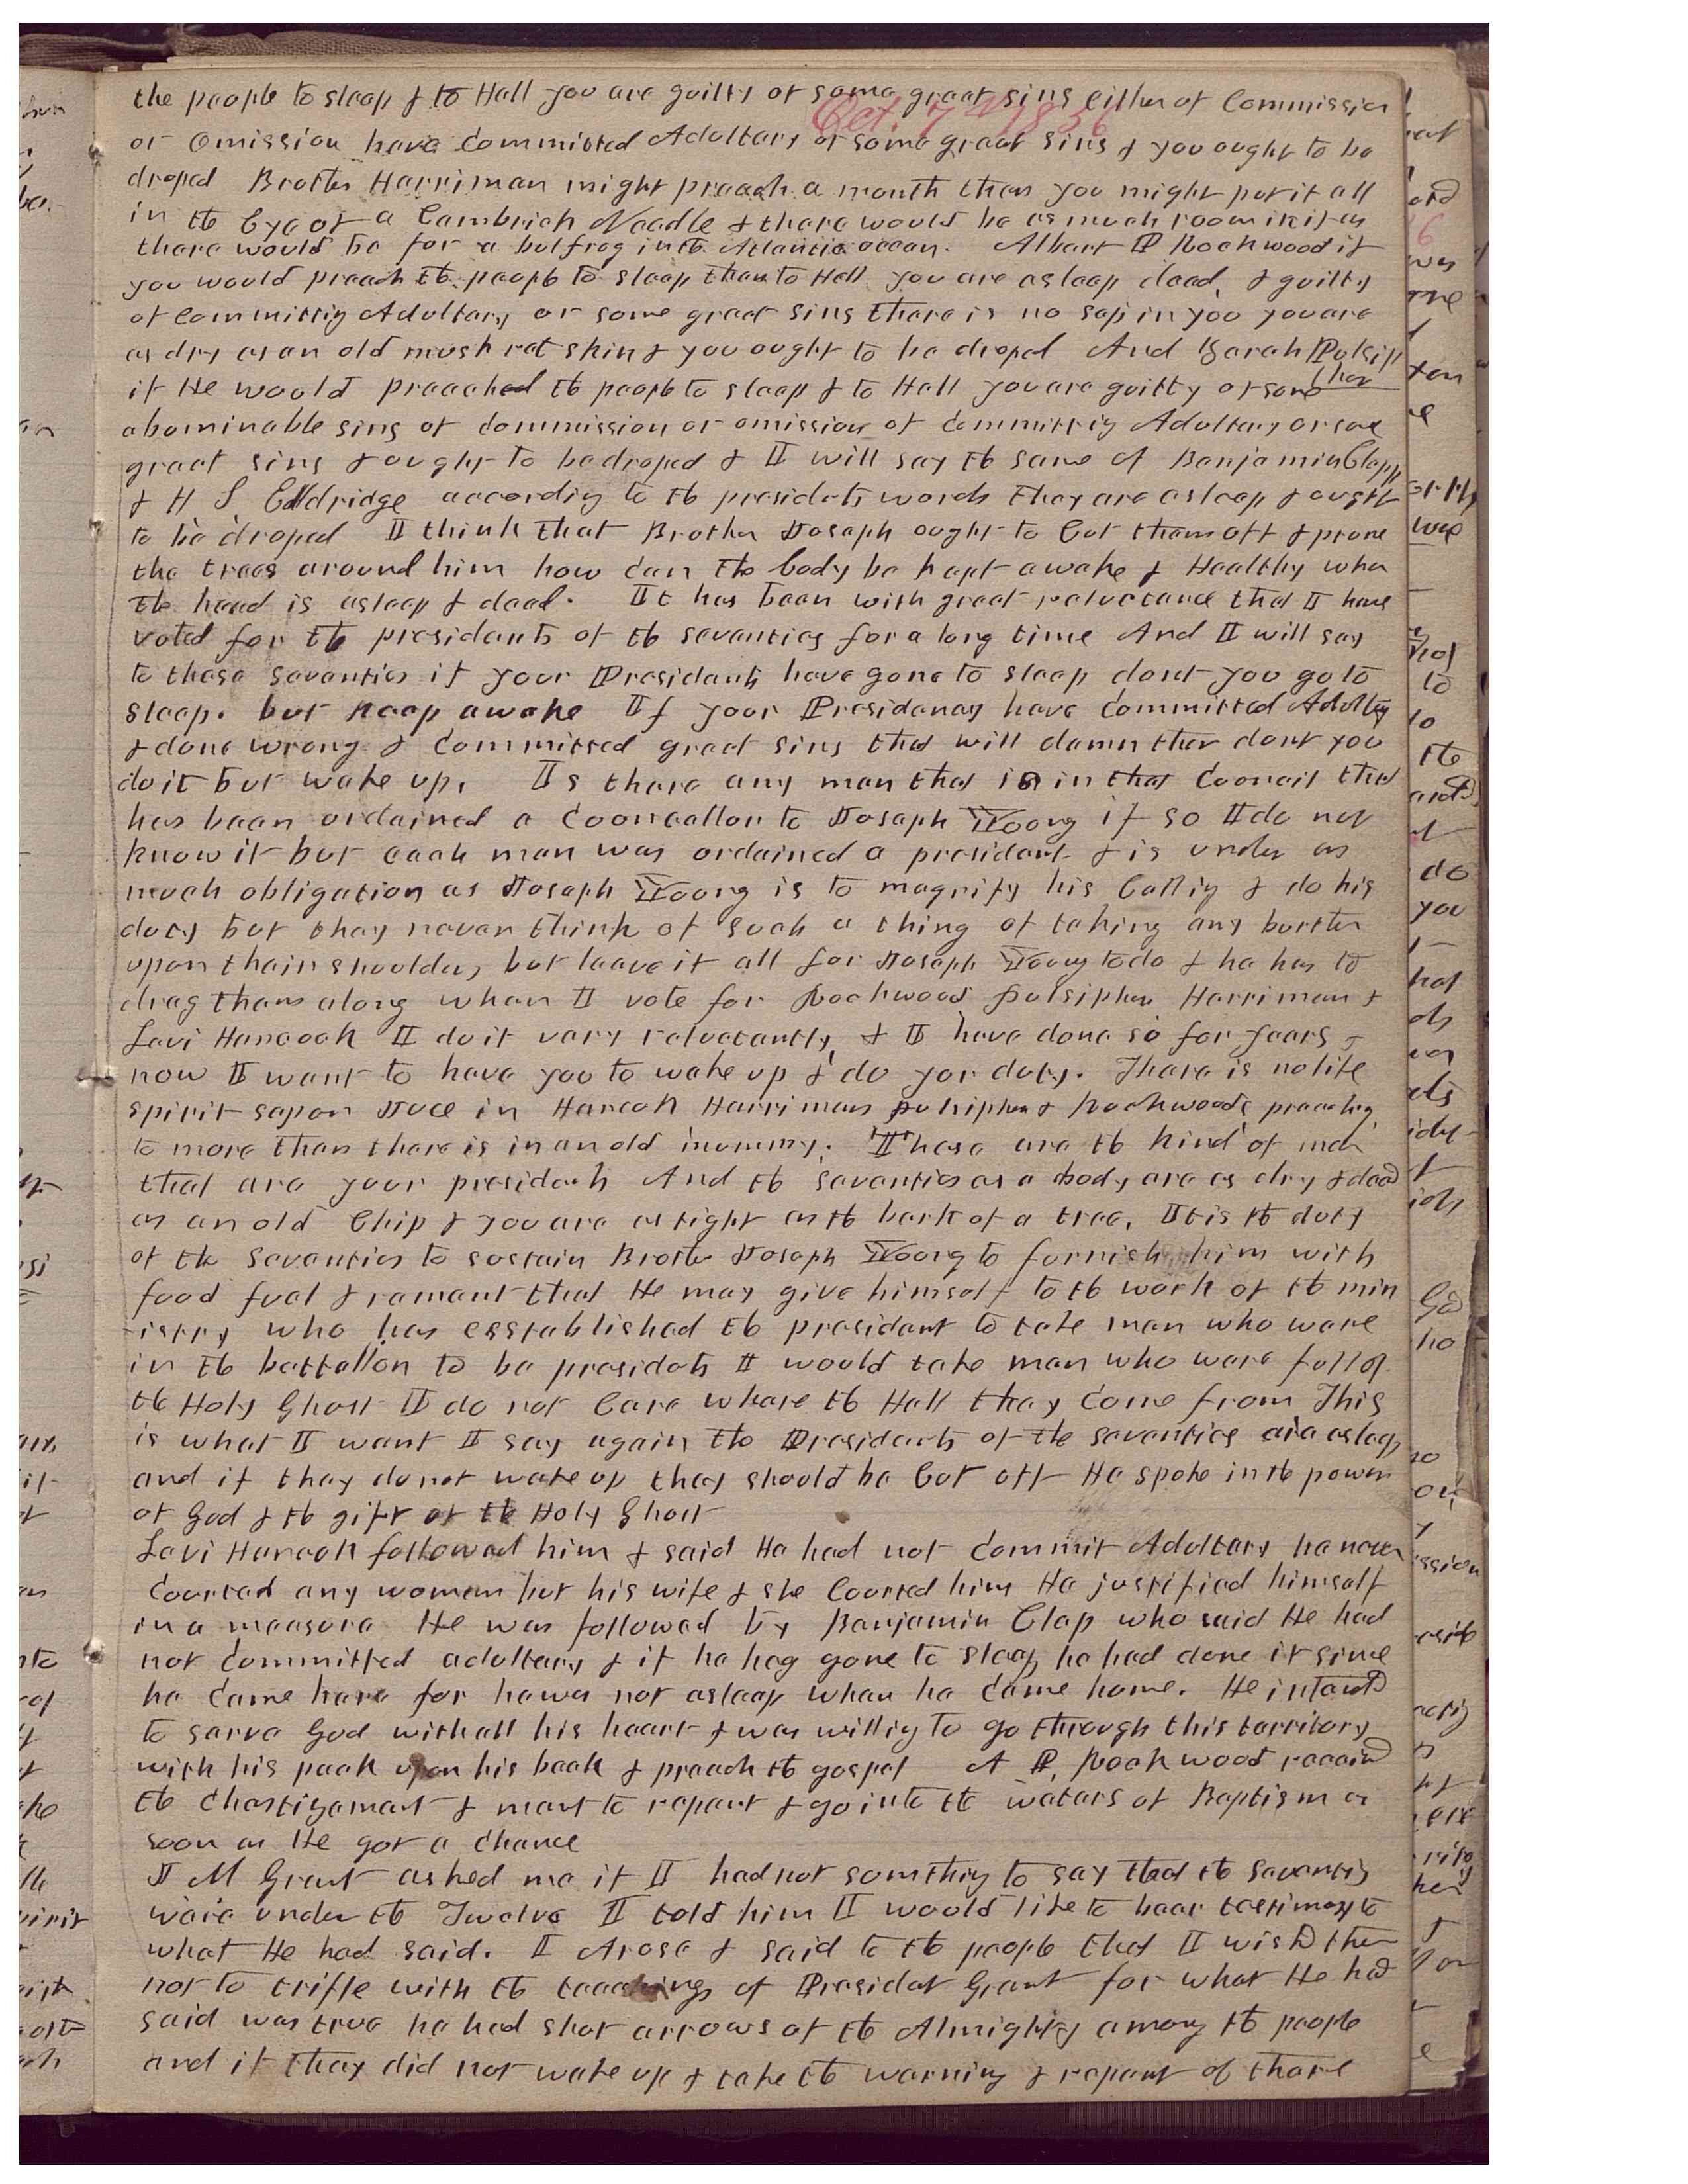 the people to sleep & to Hell you are guilty of some great sins Either of Commission
Oct. 7th 1856
or Omission have Committed Adultery or some great sins & you ought to be
droped Brother Harriman might preach a month then you might put it all
in the Eye of a Cambrick Needle & there would be as much room in it as
there would be for a bulfrog in the Atlantic ocean. Albert P Rockwood if
you would preach the people to sleep then to Hell you are asleep dead, & guilty
of Committig Adultery or some great sins there is no sap in you you are
as dry as an old mush rat skin & you ought to be droped And Zarah Pulsipher
if He would preached the people to sleep & to Hell you are guilty of some
abominable sins of commission or omission of Committig Adultery or some
great sins & ought to be droped & I will say the same of Benjamin Clapp
& H S Eldridge accordig to the presidets words they are asleep & ought
to be droped I think that Brother Joseph ought to Cut them off & prune
the trees around him how can the body be kept awake & Healthy when
the head is asleep & dead. It has been with great reluctance that I have
voted for the presidents of the seventies for a long time And I will say
to these seventies if your Presidents have gone to sleep dont you go to
sleep. but keep awake If your Presidency have Committed Adultery
& done wrong & Committed great sins that will damn them dont you
do it but wake up. Is there any man that is in that Council that
has been ordained a Councellor to Joseph Young if so I do not
know it but each man was ordained a president & is under as
much obligation as Joseph Young is to magnify his Callig & do his
duty but they never think of such a thing of taking any burthen
upon their shoulders but leave it all for Joseph Young to do & he has to
drag them along when I vote for Rockwood Pulsipher Harriman &
Levi Hancock I do it very reluctantly, & I have done so for years &
now I want to have you to wake up & do yor duty. There is no life
spirit sap or Juce in Hancok Harrimans Pulsipher & Rockwoods preachig
to more than there is in an old mummy. These are the kind of men
that are your presidents And the seventies as a body are as dry & dead
as an old Chip & you are as tight as the bark of a tree. It is the duty
of the seventies to sustain Brother Joseph Young to furnish him with
food fuel & rament that He may give himself to the work of the min
-istry who has esstablished the president to take men who were
in the battallon to be presidets I would take men who were full of
the Holy Ghost I do not Care where the Hell they Come from This
is what I want I say again the Presidents of the seventies are asleep
and if they do not wake up they should be Cut off He spoke in the power
of God & the gift of the Holy Ghost
Levi Hancock followed him & said He had not Commit Adultery he never
Courted any woman but his wife & she Courted him He justified himself
in a measure He was followed by Benjamin Clap who said He had
not Committed adultery & if he hag gone to sleep he had done it since
he Came here for he was not asleep when he Came home. He intend
to serve God with all his heart & was willig to go through this territory
with his pack upon his back & preach the gospel A P. Rockwood receivd
the Chastizement & ment to repent & go into the waters of Baptism as
soon as He got a Chance
J M Grant asked me if I had not somthig to say that the seventies
ware under the Twelve I told him I would like to bear testimony to
what He had said. I Arose & said to the people that I wishd them
not to triffle with the teachings of Presidet Grant for what He had
said was true he had shot arrows of the Almighty among the people
and if they did not wake up & take the warning & repent of there